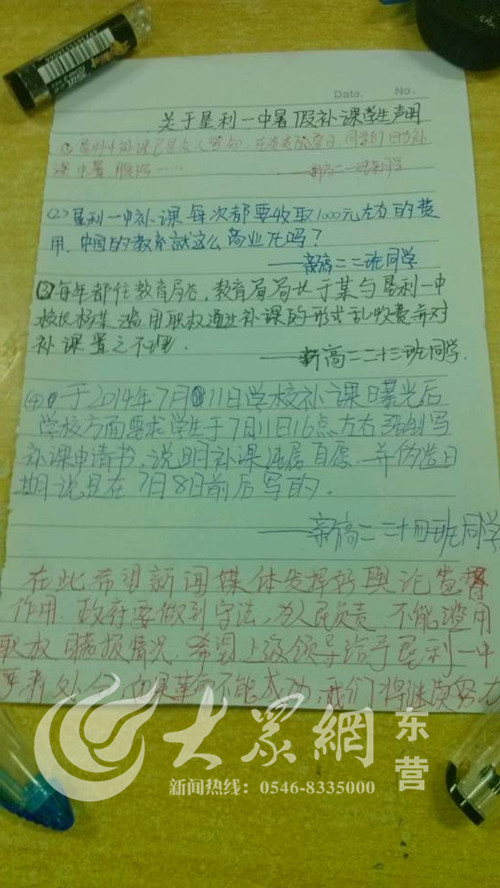 Date. No.
关于垦利一中暑假补课学生声明
课中暑
(2)垦利一中补课每次都要收取1000元左右的费
用,中国的教育就这么商业化吗?
——新高二二班同学
(3)每年都任教育局局长于某与垦利一中
校长杨某滥用职权通过补课的形式乱收费并对
补课置之不理.
——新高二二十三班同学.
(4)于2014年7月11日学校补课曝光后
学校方面要求学生于7月11日16点左右写
补课申请书,说明补课纯属自愿.并伪造日
期说是在7月8日前后写的.
——新高二二十四班同学
在此希望新闻媒体发挥好舆论监督
作用.政府要做到守法,为人民负责 不能滥用
职权 瞒报情况.希望上级领导给予垦利一中
严肃处分.如果革命不能成功,我们将继续努力
大眾網 东营
新闻热线:0546-8335000